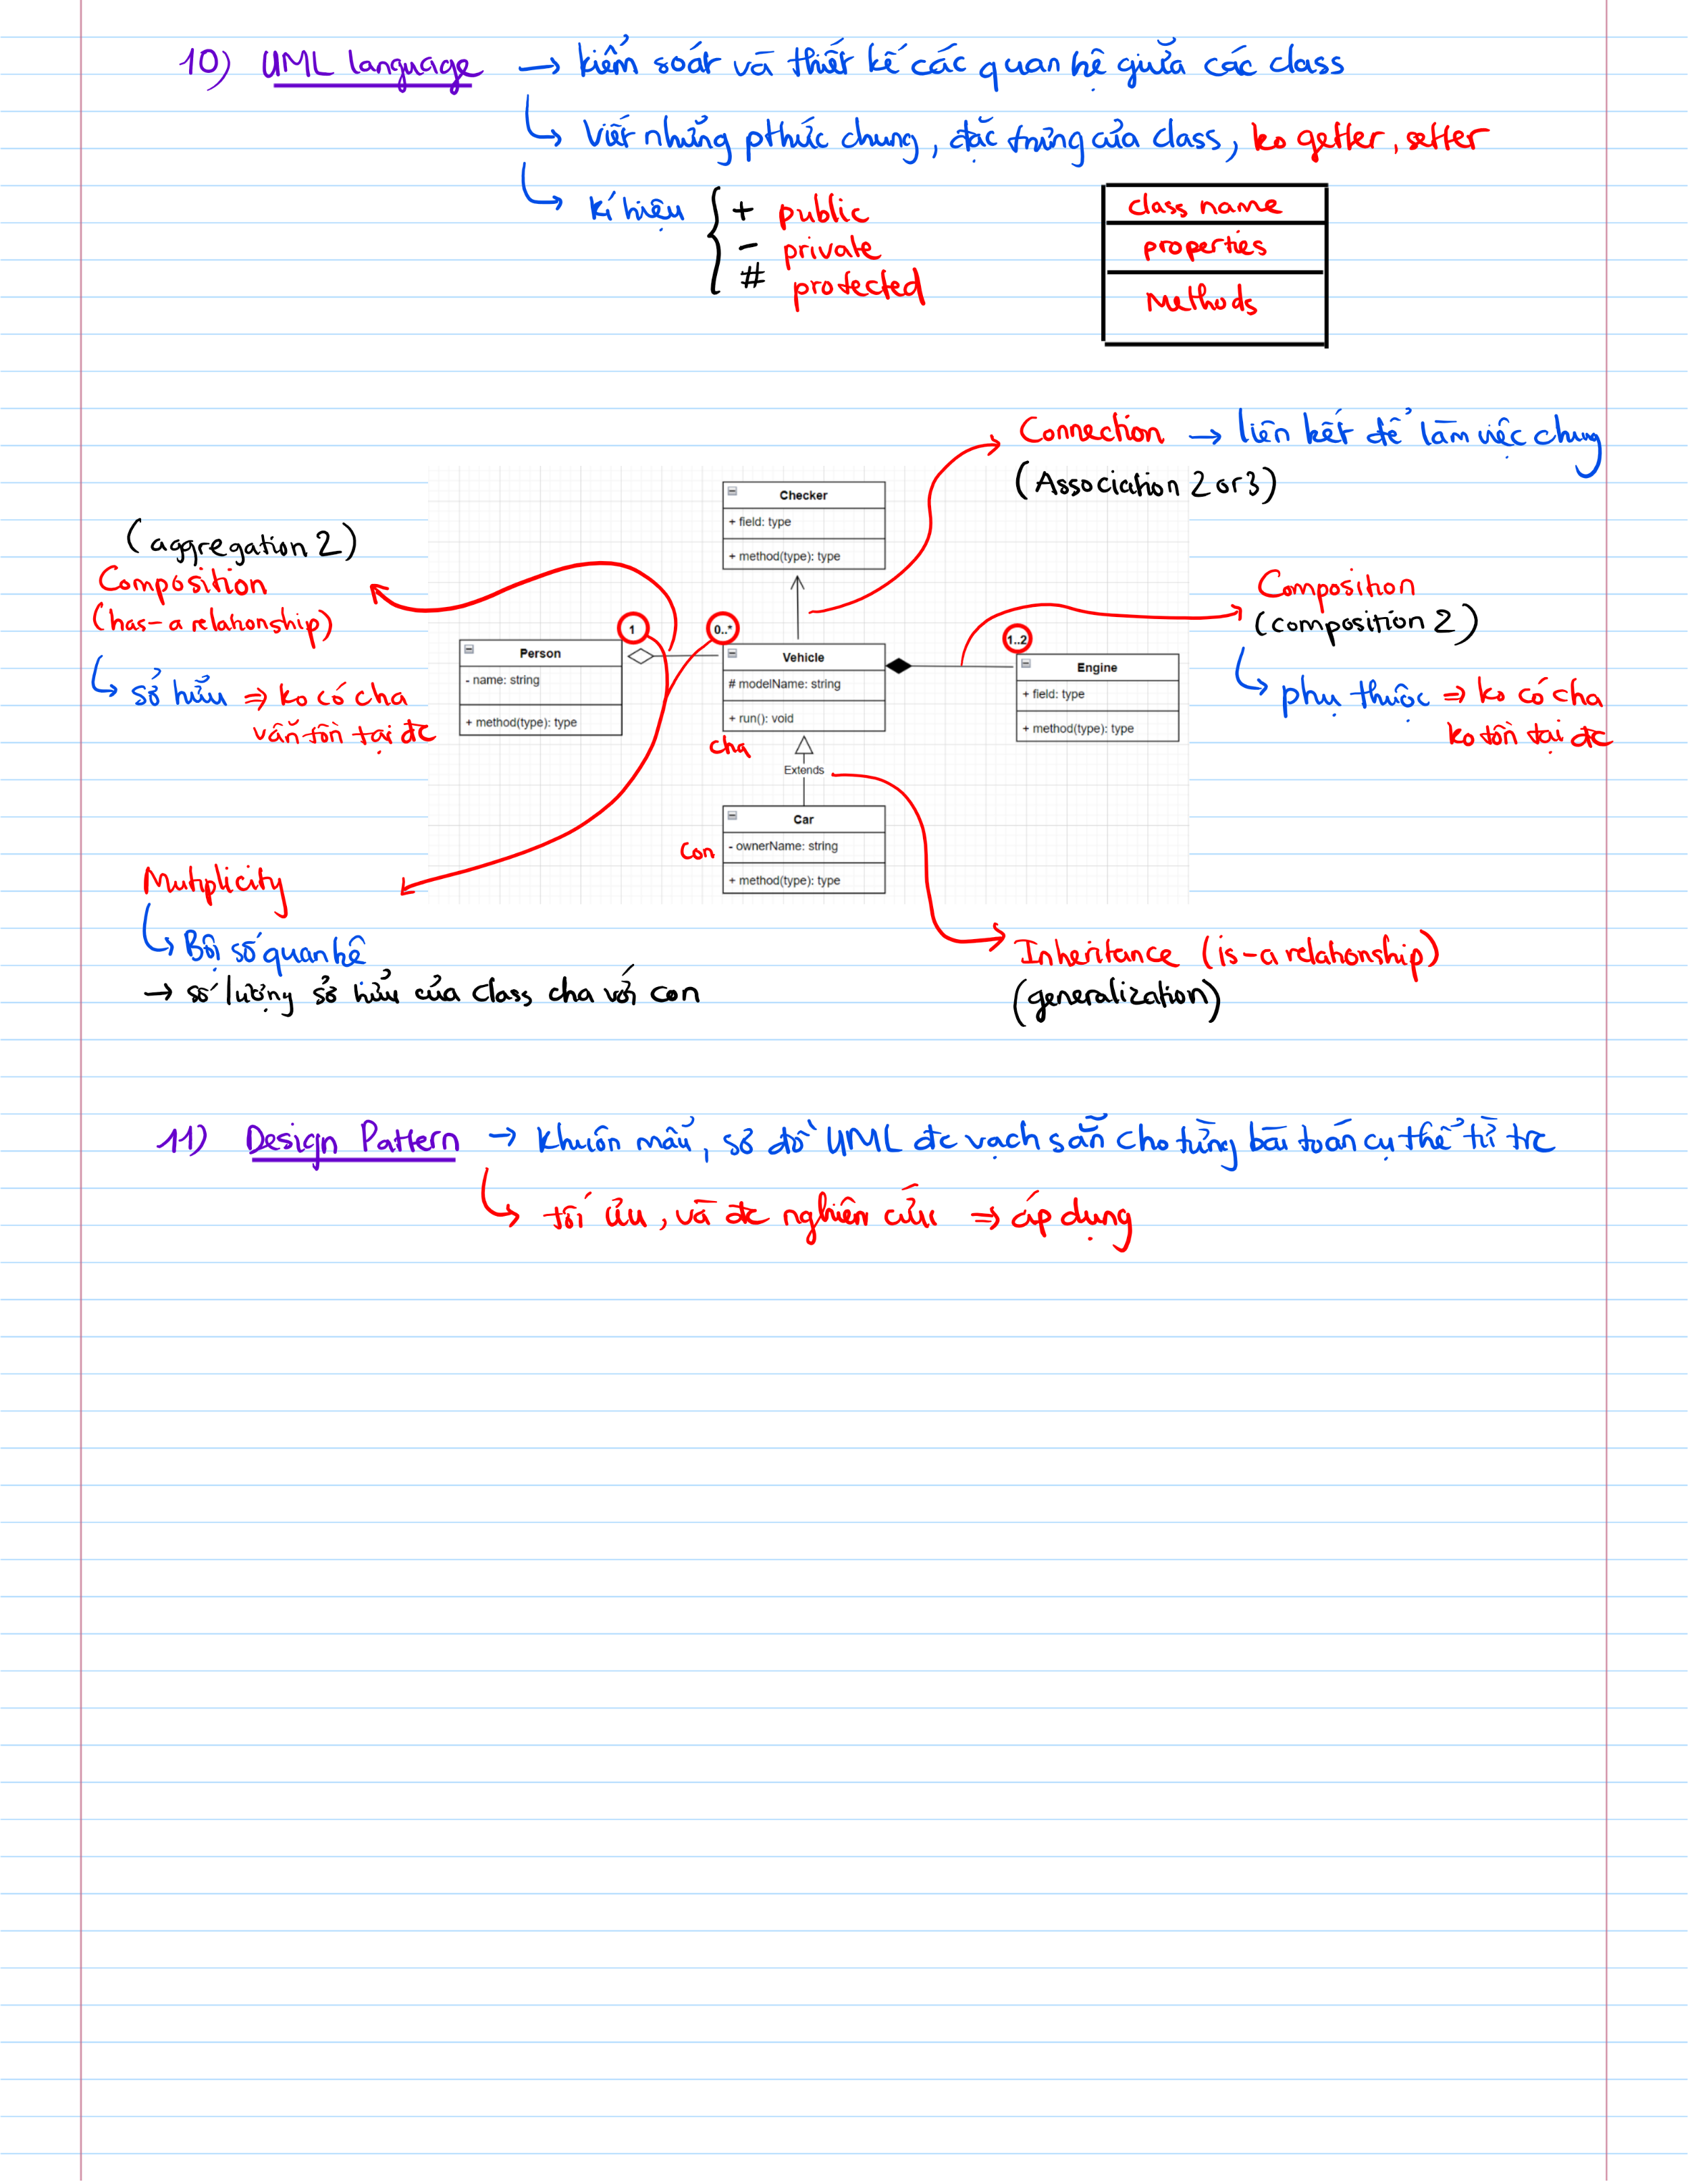 10) UML language → kiểm soát và thiết kế các quan hệ giữa các class
↳ Viết những pthức chung, đặc trưng của class, ko getter, setter
↳ kí hiệu { + public
- private
# protected
class name
properties
Methods
Connection → liên kết để làm việc chung
(Association 2 or 3)
Checker
+ field: type
+ method(type): type
(aggregation 2)
Composition
(has-a relationship)
↳ sở hữu ⇒ ko có cha
vẫn tồn tại đc
Composition
(composition 2)
↳ phụ thuộc ⇒ ko có cha
ko tồn tại đc
1
0..*
1..2
Person
- name: string
+ method(type): type
Vehicle
# modelName: string
+ run(): void
Engine
+ field: type
+ method(type): type
cha
Extends
Car
- ownerName: string
+ method(type): type
con
Mutiplicity
↳ Bội số quan hệ
→ số lượng sở hữu của class cha với con
Inheritance (is-a relationship)
(generalization)
11) Design Pattern → khuôn mẫu, sơ đồ UML đc vạch sẵn cho từng bài toán cụ thể từ trc
↳ tối ưu, và đc nghiên cứu ⇒ áp dụng